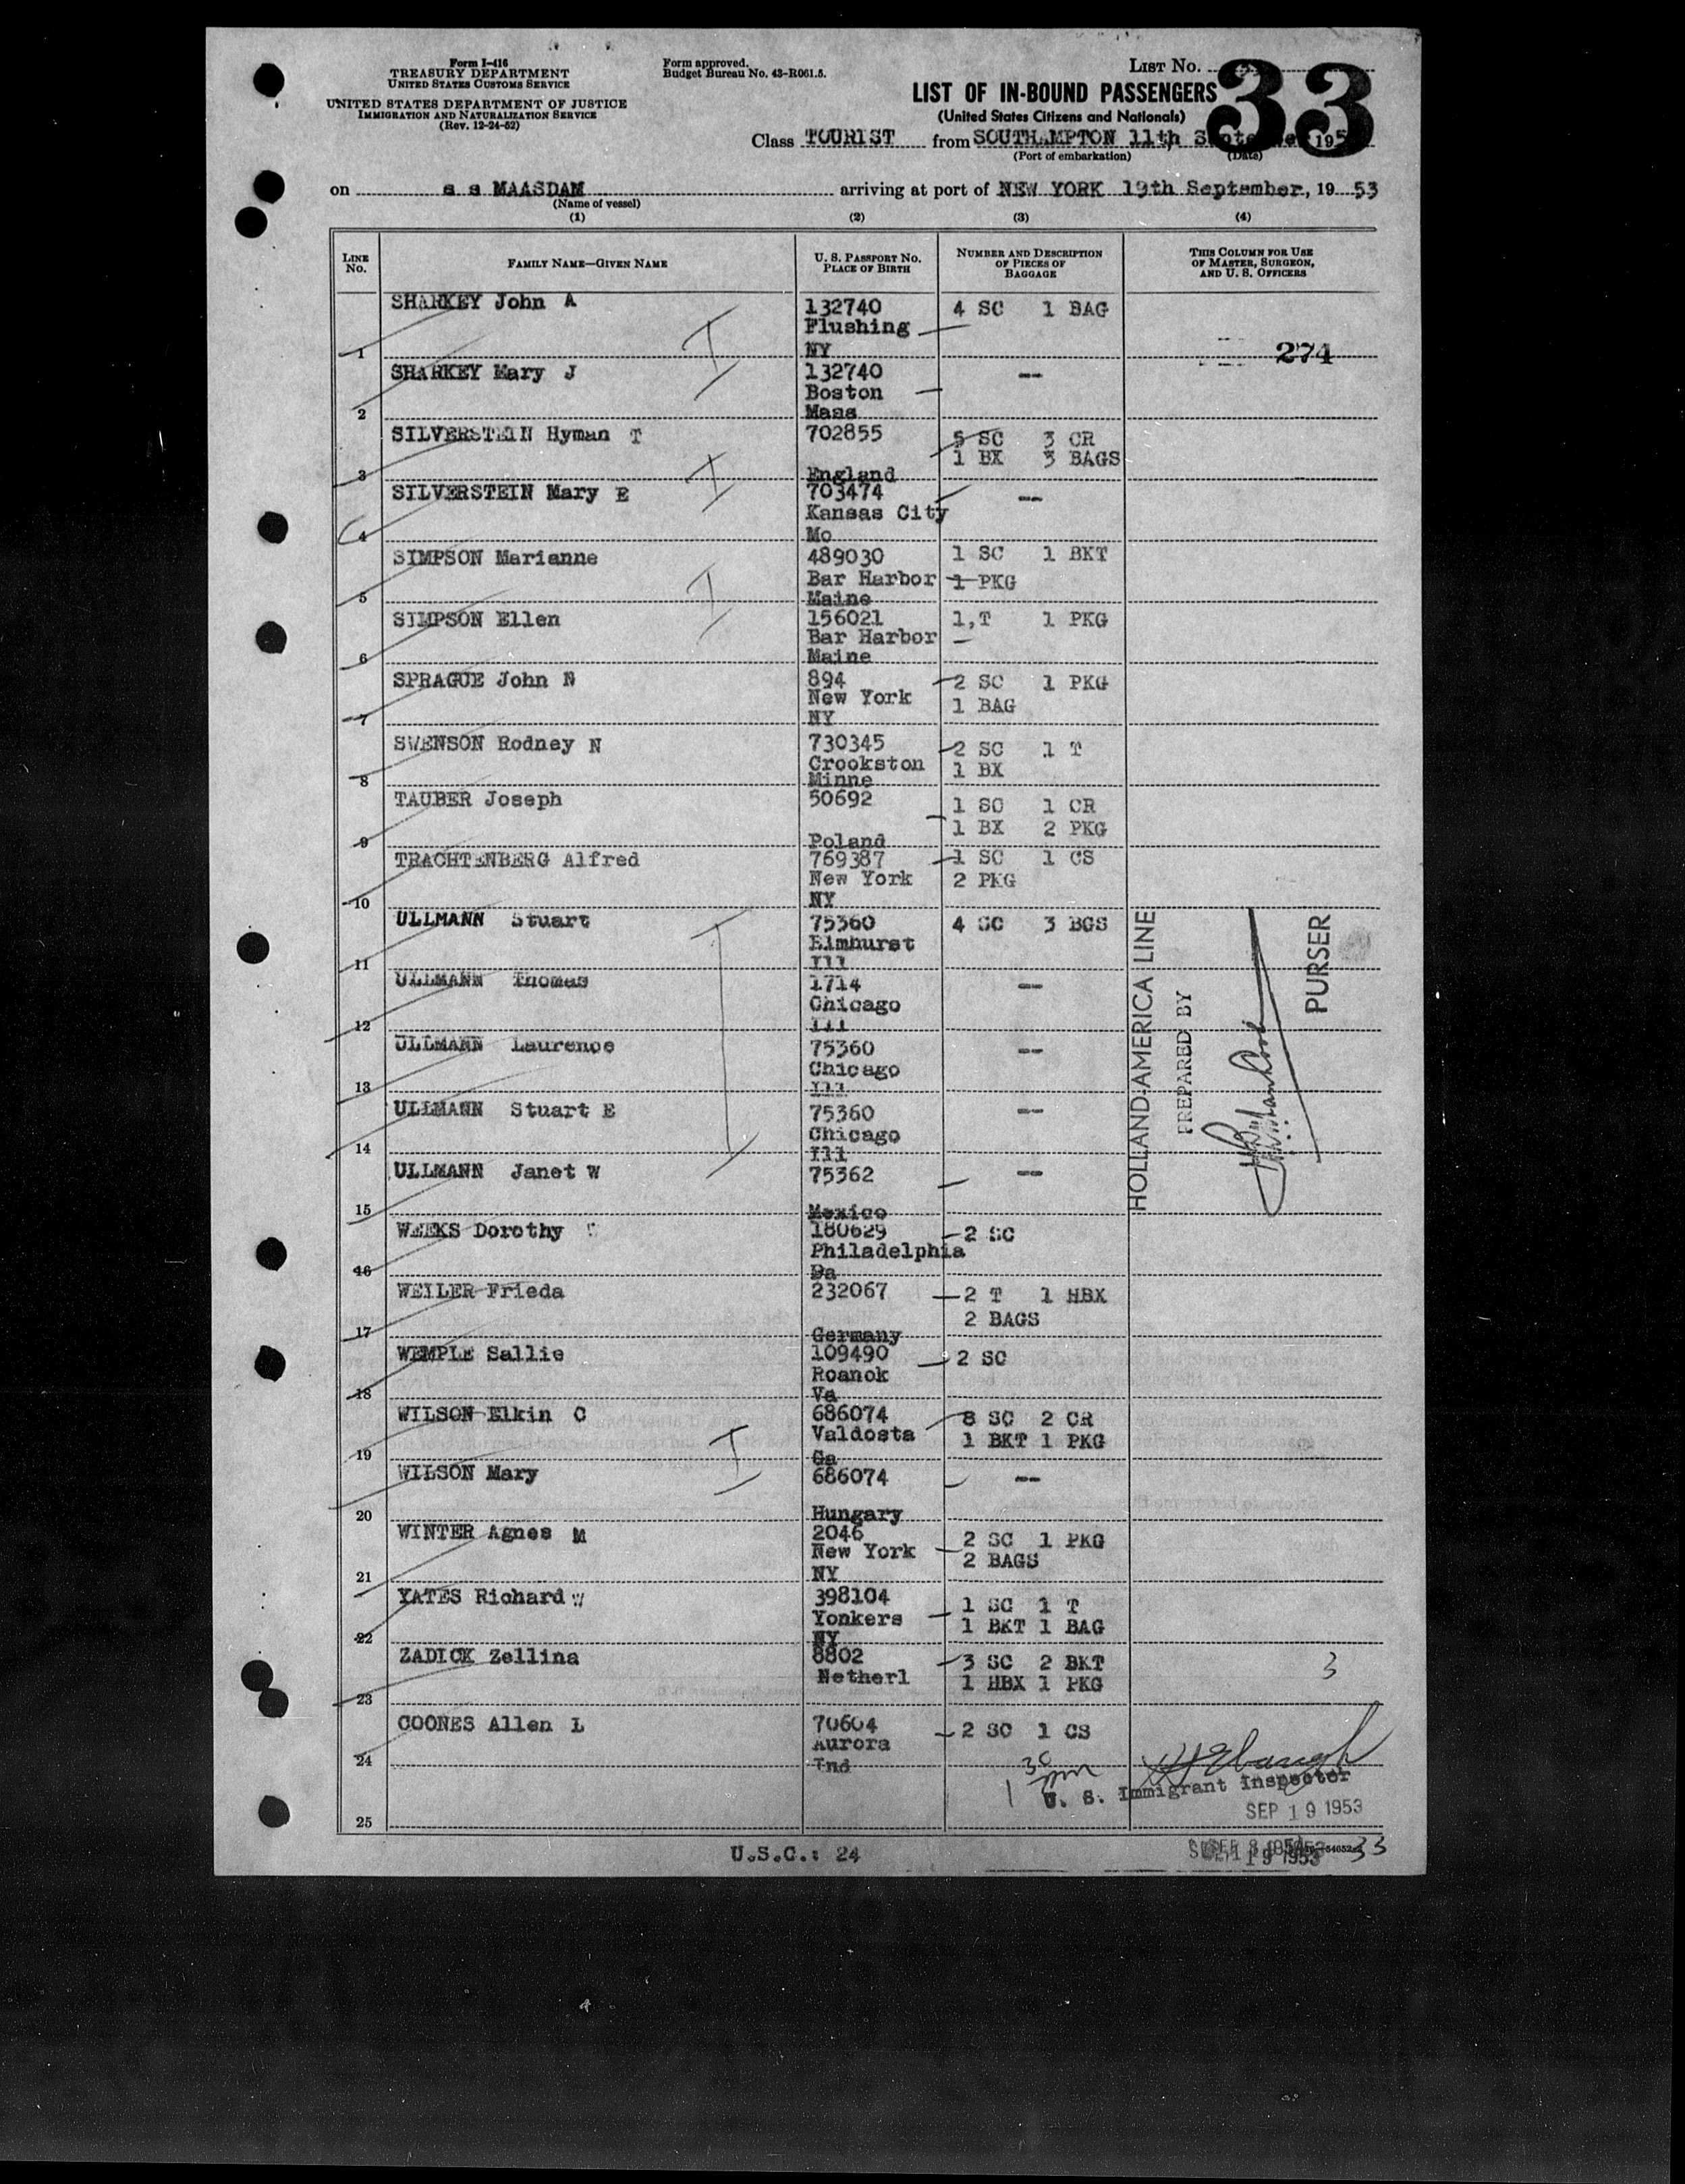 Form I-416
TREASURY DEPARTMENT
UNITED STATES CUSTOMS SERVICE
UNITED STATES DEPARTMENT OF JUSTICE
IMMIGRATION AND NATURALIZATION SERVICE
(Rev. 12-24-52)
Form approved.
Budget Bureau No. 43-R061.5.
LIST NO. 33
LIST OF IN-BOUND PASSENGERS
(United States Citizens and Nationals)
Class TOURIST from SOUTHAMPTON 11th September 195
(Port of embarkation) (Date)
on s s MAASDAM arriving at port of NEW YORK 19th September, 19 53
(Name of vessel)
(1) (2) (3) (4)
LINE NO. FAMILY NAME—GIVEN NAME U. S. PASSPORT NO. PLACE OF BIRTH NUMBER AND DESCRIPTION OF PIECES OF BAGGAGE THIS COLUMN FOR USE OF MASTER, SURGEON, AND U. S. OFFICERS
SHARKEY John A 132740 4 SC 1 BAG
Flushing
1 NY 274
SHARKEY Mary J 132740 --
Boston
2 Mass
SILVERSTEIN Hyman T 702855 5 SC 3 CR
1 BX 3 BAGS
3 England
SILVERSTEIN Mary E 703474 --
Kansas City
4 Mo
SIMPSON Marianne 489030 1 SC 1 BKT
Bar Harbor 1 PKG
5 Maine
SIMPSON Ellen 156021 1,T 1 PKG
Bar Harbor
6 Maine
SPRAGUE John N 894 2 SC 1 PKG
New York 1 BAG
7 NY
SWENSON Rodney N 730345 2 SC 1 T
Crookston 1 BX
8 Minne
TAUBER Joseph 50692 1 SC 1 CR
1 BX 2 PKG
9 Poland
TRACHTENBERG Alfred 769387 1 SC 1 CS
New York 2 PKG
10 NY
ULLMANN Stuart 75360 4 SC 3 BGS
Elmhurst
11 Ill
ULLMANN Thomas 1714 --
Chicago
12 Ill
ULLMANN Laurence 75360 --
Chicago
13 Ill
ULLMANN Stuart E 75360 --
Chicago
14 Ill
ULLMANN Janet W 75362 --
15 Mexico
HOLLAND-AMERICA LINE
PREPARED BY
PURSER
WEEKS Dorothy 180629 2 SC
Philadelphia
16 Pa
WEILER Frieda 232067 2 T 1 HBX
2 BAGS
17 Germany
WEMPLE Sallie 109490 2 SC
Roanok
18 Va
WILSON Elkin C 686074 8 SC 2 CR
Valdosta 1 BKT 1 PKG
19 Ga
WILSON Mary 686074 --
20 Hungary
WINTER Agnes M 2046 2 SC 1 PKG
New York 2 BAGS
21 NY
YATES Richard W 398104 1 SC 1 T
Yonkers 1 BKT 1 BAG
22 NY
ZADICK Zellina 8802 3 SC 2 BKT 3
Netherl 1 HBX 1 PKG
23
COONES Allen L 70604 2 SC 1 CS
Aurora
24 Ind
U. S. Immigrant Inspector
SEP 19 1953
25
U.S.C.: 24
33